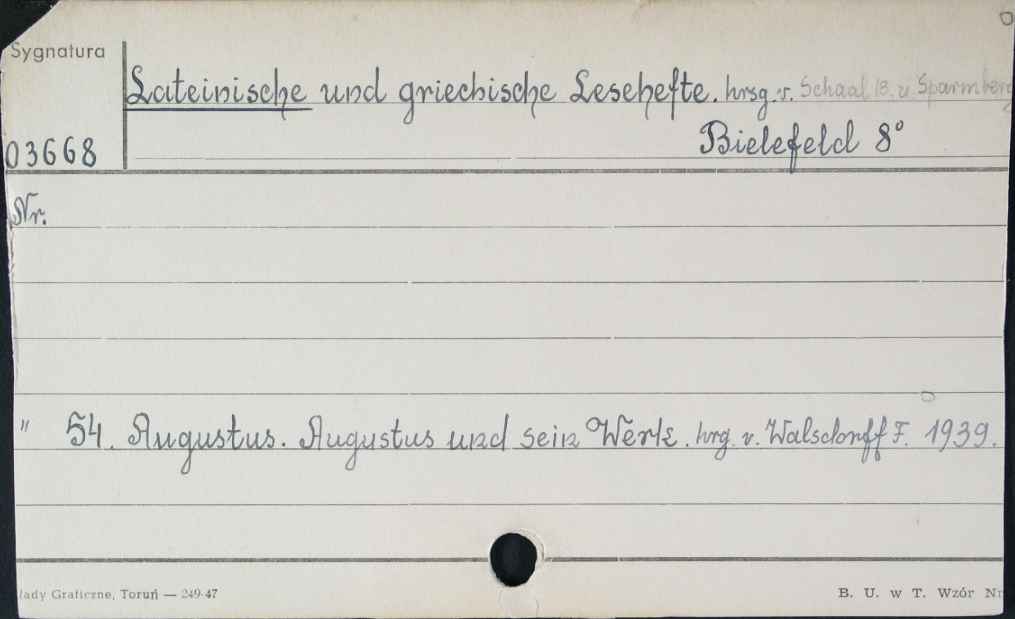 Sygnatura
Lateinische und griechische Lesehefte. hrsg. v. Schaal B. u. Sparmberg
03668 Bielefeld 8°
Nr.
" 54. Augustus. Augustus und sein Werk. hrg. v. Walsdorff F. 1939.
łady Graficzne, Toruń — 249-47
B. U. w T. Wzór Nr